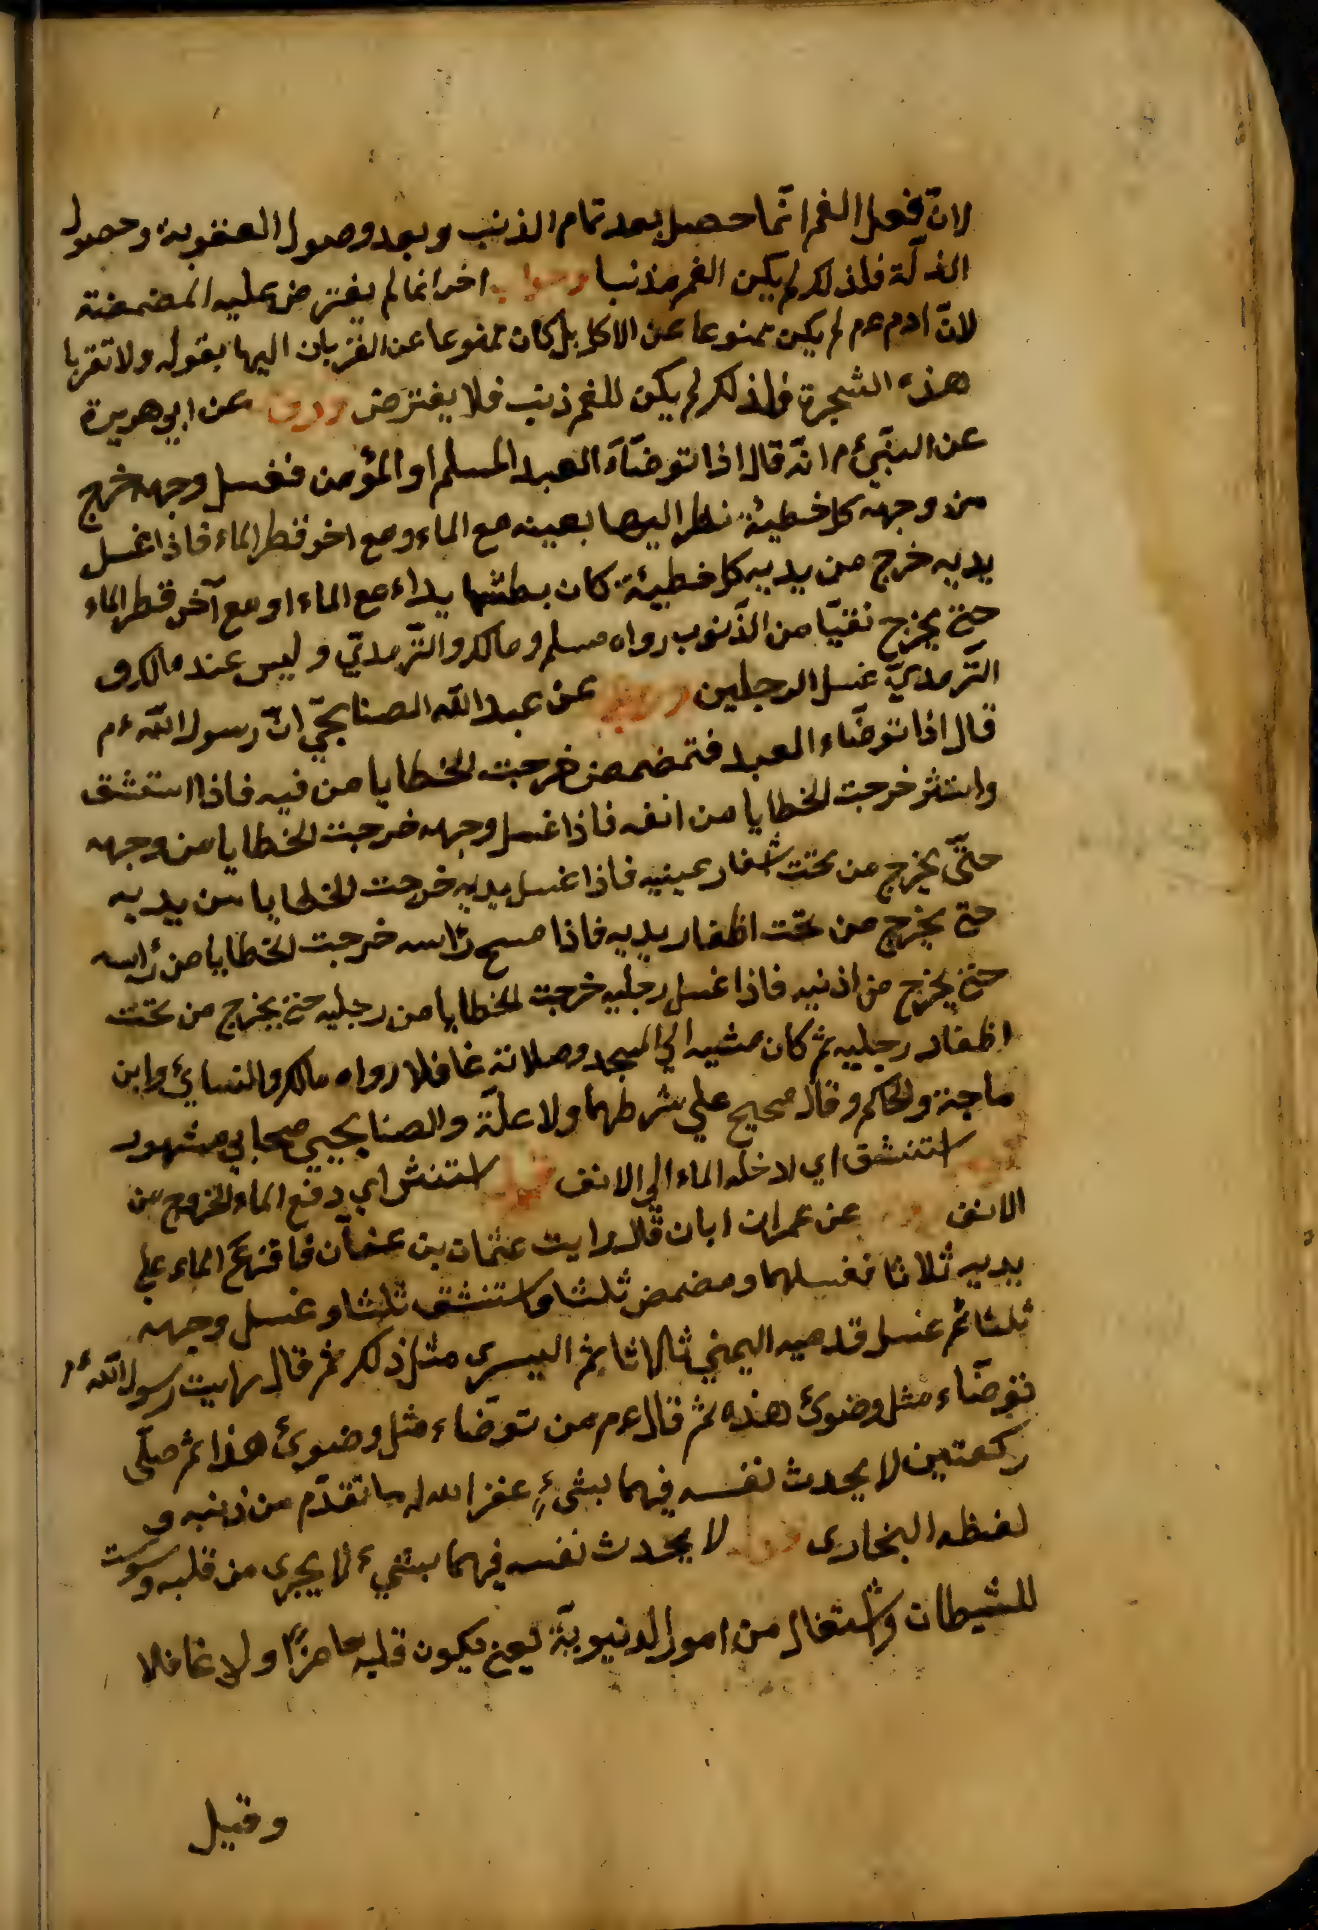 لانّ فعل الفم انّما حصل بعد تمام الذنب وبعد وصول العقوبة وحصول
الذلّة فلذلك لم يكن الفم مذنبا وجواب اخر انما لم يفترض عليه المضمضة
لانّ ادم عم لم يكن ممنوعا عن الاكل بل كان ممنوعا عن القربان اليها بقوله ولا تقربا
هذه الشجرة فلذلك لم يكن للفم ذنب فلا يفترض وروى عن ابي هريرة
عن النبّيء م انّه قال اذا توضّأ العبد المسلم او المؤمن فغسل وجهه خرج
من وجهه كل خطيئة نظر اليها بعينه مع الماء ومع اخر قطر الماء فاذا غسل
يديه خرج من يديه كل خطيئة كان بطشها يداه مع الماء او مع آخر قطر الماء
حتى يخرج نقيّا من الذّنوب رواه مسلم ومالك والتّرمديّ وليس عند مالك و
التّرمديّ غسل الرجلين وروى عن عبد الله الصنابحيّ انّ رسول الله ءم
قال اذا توضّاء العبد فتمضمض خرجت الخطايا من فيه فاذا استنشق
وانتثر خرجت الخطايا من انفه فاذا غسل وجهه خرجت الخطايا من وجهه
حتّى يخرج من تحت شفار عينيه فاذا غسل يديه خرجت الخطايا من يديه
حتى يخرج من تحت اظفار يديه فاذا مسح رأسه خرجت الخطايا من رأسه
حتى يخرج من اذنيه فاذا غسل رجليه خرجت الخطايا من رجليه حتى يخرج من تحت
اظفار رجليه ثم كان مشيه الي المسجد وصلاته غافلا رواه مالك والنسائ وابن
ماجة والحاكم وقال صحيح علي شرطهما ولا علّة والصنابحيي صحابي مشهور
استنشق اي ادخله الماء الي الانف قوله استنثر اي دفع الماء للخروج من
الانف عن عمران ابان قال رايت عثمان بن عفّان فافترغ الماء علي
يديه ثلاثا فغسلهما ومضمض ثلثا واستنشق ثلثا وغسل وجهه
ثلثا ثم غسل قدميه اليمني ثالاثا ثم اليسرى مثل ذلك ثم قال رايت رسول الله ءم
توضّاء مثل وضوئ هذه ثم قال عم من توضّاء مثل وضوئ هذا ثم صلّى
ركعتين لا يحدث نفسه فيهما بشيء غفر الله له ما تقدّم من ذنبه و
لفظه البخارى قوله لا يحدث نفسه فيهما بشيء لا يجرى من قلبه وسوست
للشيطان واشتغال من امور الدنيويّة يعني يكون قلبه حاضرًا ولا غافلا
وقيل